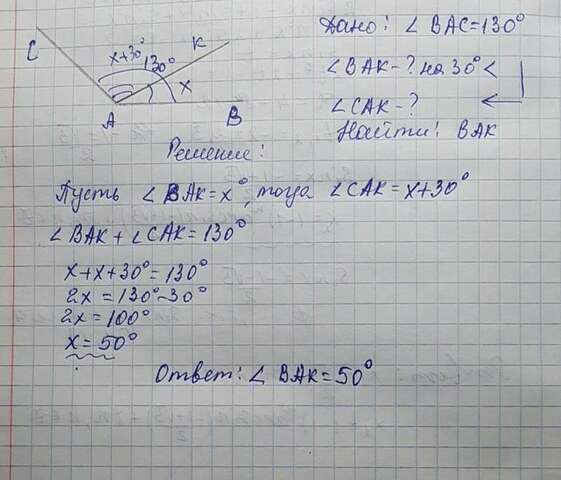 C
x+30°
130°
K
x
A
B
Дано: ∠ BAC=130°
∠BAK-? на 30° <
∠CAK-?
Найти: BAK
Решение:
Пусть ∠BAK=x°, тогда ∠CAK=x+30°
∠BAK+∠CAK=130°
x+x+30°=130°
2x=130°-30°
2x=100°
x=50°
Ответ: ∠ BAK=50°